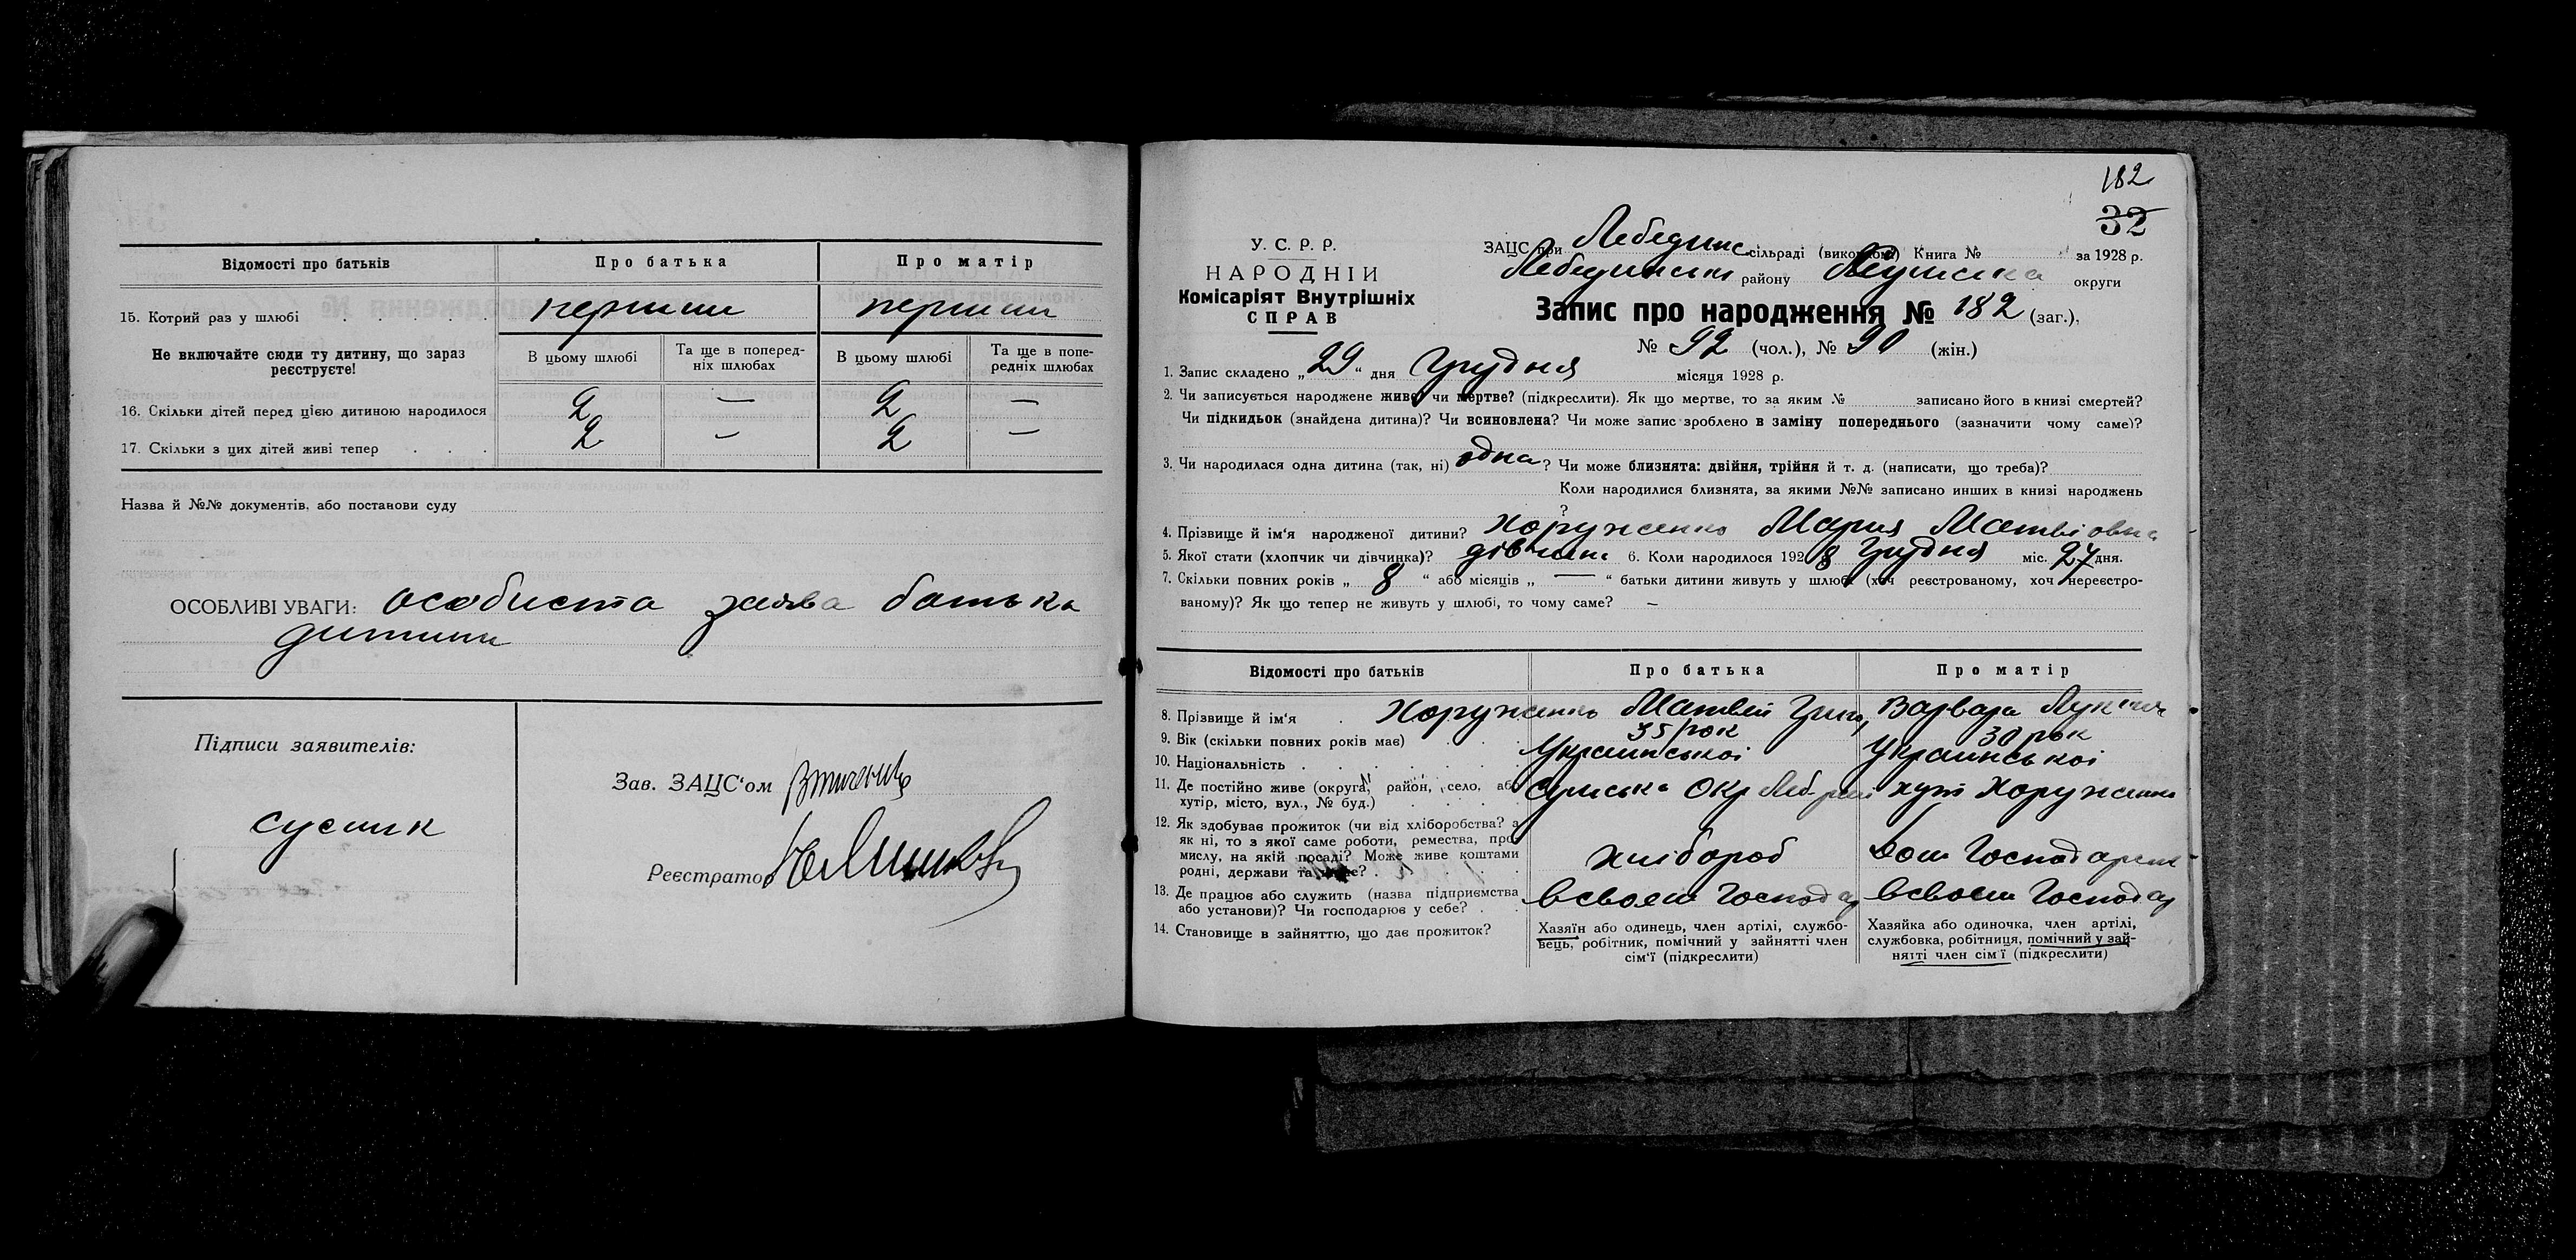 Відомості про батьків
Про батька
Про матір
15. Котрий раз у шлюбі
перший
перший
Не включайте сюди ту дитину, що зараз реєструєте!
В цьому шлюбі
Та ще в поперед-
ніх шлюбах
В цьому шлюбі
Та ще в попе-
редніх шлюбах
16. Скільки дітей перед цією дитиною народилося
2 — 2 —
17. Скільки з цих дітей живі тепер
2 — 2 —
Назва й №№ документів, або постанови суду
ОСОБЛИВІ УВАГИ: особиста заява батька
дитини
Підписи заявителів:
Зав. ЗАЦС'ом
Реєстратор
182
32
У. С. Р. Р.
НАРОДНІЙ
Комісаріят Внутрішніх
СПРАВ
ЗАЦС при Лебединс сільраді (виконкомі) Книга № за 1928 р.
Лебединськ району округи
Запис про народження № 182 (заг.),
№ 92 (чол.), № 90 (жін.)
1. Запис складено „29“ дня Грудня місяця 1928 р.
2. Чи записується народжене живе? чи мертве? (підкреслити). Як що мертве, то за яким № записано його в книзі смертей?
Чи підкидьок (знайдена дитина)? Чи всиновлена? Чи може запис зроблено в заміну попереднього (зазначити чому саме)?
3. Чи народилася одна дитина (так, ні) одна? Чи може близнята: двійня, трійня й т. д. (написати, що треба)?
Коли народилися близнята, за якими №№ записано инших в книзі народжень
?
4. Прізвище й ім'я народженої дитини? Хоруженко Мария Матвіовна
5. Якої стати (хлопчик чи дівчинка)? дівчина 6. Коли народилося 1928 Грудня міс. 27 дня.
7. Скільки повних років „8“ або місяців „—“ батьки дитини живуть у шлюбі (хоч реєстрованому, хоч нереєстро-
ваному)? Як що тепер не живуть у шлюбі, то чому саме? —
Відомості про батьків
Про батька
Про матір
8. Прізвище й ім'я Хоруженко Матвей Григ, Варвара Лукічн
9. Вік (скільки повних років має) 35 рок 30 рок
10. Національність Украинськоі Украинськоі
11. Де постійно живе (округа, район, село, або
хутір, місто, вул., № буд.)
Сумська Окр Леб. рай хут Хоруженки
12. Як здобуває прожиток (чи від хліборобства? а
як ні, то з якої саме роботи, ремества, про-
мислу, на якій посаді? Може живе коштами
родні, держави та инше?
хлібороб
Дом Господарст
13. Де працює або служить (назва підприємства
або установи)? Чи господарює у себе?
всвоем Господар
всвоем Господар
14. Становище в зайняттю, що дає прожиток?
Хазяїн або одинець, член артілі, службо-
вець, робітник, помічний у зайнятті член
сім'ї (підкреслити)
Хазяйка або одиночка, член артілі,
службовка, робітниця, помічний у зай-
нятті член сім'ї (підкреслити)